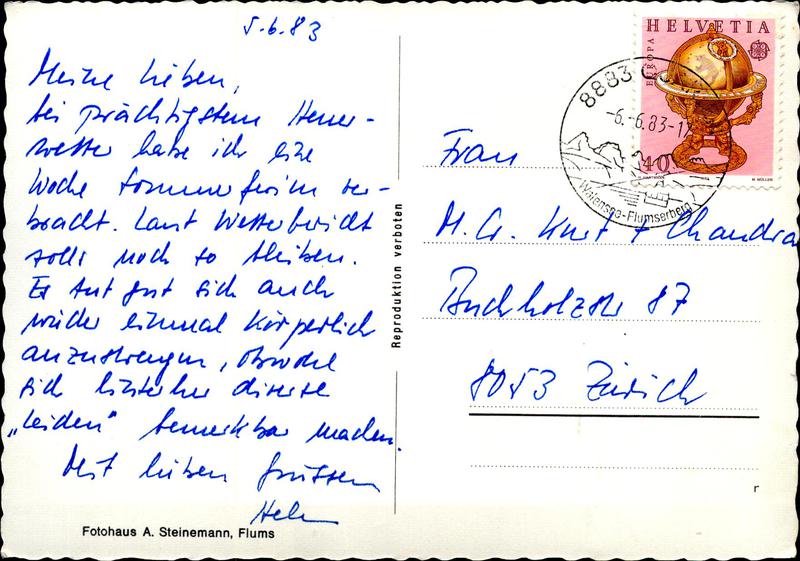 5.6.83
Meine Lieben,
bei prächtigstem Heuer-
wetter habe ich eine
Woche Sommerferien ver-
bracht. Laut Wetterbericht
solls noch so bleiben.
Es tut gut sich auch
wieder einmal körperlich
anzustrengen, obwohl
sich hinterher diverse
„Leiden" bemerkbar machen.
Mit lieben Grüssen
Fotohaus A. Steinemann, Flums
Reproduktion verboten
HELVETIA
EUROPA
40
8883
-6.-6.83-1
Walensee-Flumserberg
Frau
M. G. Kurt + Chandra
Buchholzstr 87
8053 Zürich
r